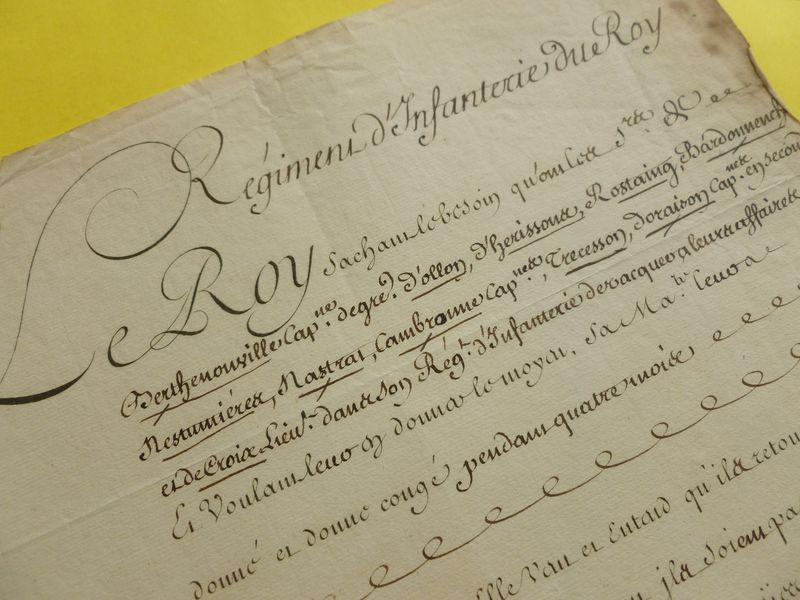 Régiment d'Infanterie du Roy
Le Roy sachant le besoin qu'ont les Srs. &c
Berthenonville Capne. de gre. d'ollon, d'herissons, Rostaing, Bardonnench
Nestumiéres, Nastrat, Cambronne Capnes, Trecesson, Doraison Capnes. en second
et de Croix Lieut. dans son Régt. d'Infanterie de vacquer a leurs affaires
Et Voulant leur en donner le moyen, Sa Maté. leur a
donné et donne congé pendant quatre mois
Elle Vau et Entend qu'ils retou
ils soient pa